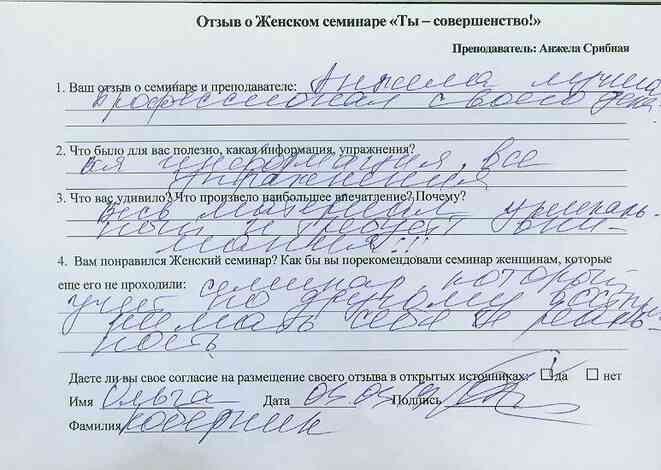 Отзыв о Женском семинаре «Ты – совершенство!»
Преподаватель: Анжела Срибная
1. Ваш отзыв о семинаре и преподавателе: Анжела лучший
профессионал своего дела
2. Что было для вас полезно, какая информация, упражнения?
вся информация, все
упражнения
3. Что вас удивило? Что произвело наибольшее впечатление? Почему?
весь материал уникаль-
ный и требует вни-
мания!!!
4. Вам понравился Женский семинар? Как бы вы порекомендовали семинар женщинам, которые
еще его не проходили: семинар, который
учит по другому воспри-
нимать себя и реаль-
ность
Даете ли вы свое согласие на размещение своего отзыва в открытых источниках: да нет
Имя Ольга Дата Подпись
Фамилия